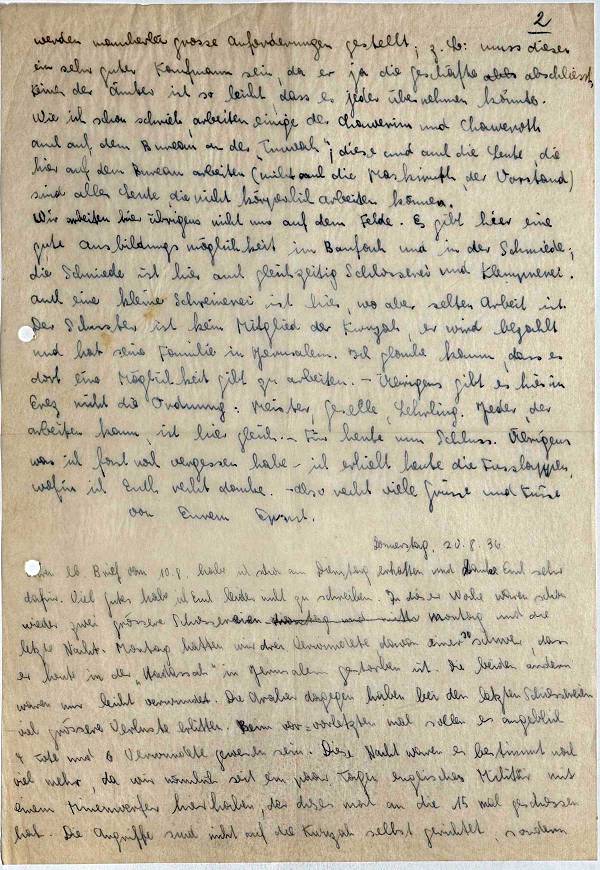 2
werden mancherlei grosse Anforderungen gestellt; z.B. muss dieser
ein sehr guter Kaufmann sein, da er ja die Geschäfte abschliesst,
keines der Ämter ist so leicht, dass es jeder übernehmen könnte.
Wie ich schon schrieb, arbeiten einige der Chawerim und Chaweroth
auch auf dem Bureau an der "Tnuvah"; diese und auch die Leute, die
hier auf dem Bureau arbeiten (nicht auch die Maskiruth, der Vorstand)
sind alles Leute die nicht körperlich arbeiten können.
Wir arbeiten hier übrigens nicht nur auf dem Felde. Es gibt hier eine
gute Ausbildungsmöglichkeit im Baufach und in der Schmiede;
die Schmiede ist hier auch gleichzeitig Schlosserei und Klempnerei.
auch eine kleine Schreinerei ist hier, wo aber selten Arbeit ist.
Der Schuster ist kein Mitglied der Kwuzah, er wird bezahlt
und hat seine Familie in Jerusalem. Ich glaube kaum, dass es
dort eine Möglichkeit gibt zu arbeiten. – Übrigens gibt es hier in
Erez nicht die Ordnung: Meister, Geselle, Lehrling. Jeder, der
arbeiten kann, ist hier gleich. – Für heute nun Schluss. Übrigens
was ich fast noch vergessen habe – ich erhielt heute die Fusslappen,
wofür ich Euch recht danke. – Also recht viele Grüsse und Küsse
von Eurem Ernst.
Donnerstag, 20.8.36
lb. Brief vom 10.8. habe ich schon am Dienstag erhalten und danke Euch sehr
dafür. Viel gutes habe ich Euch leider nicht zu schreiben. In dieser Woche waren schon
wieder zwei grössere Schiessereien Montag und die
letzte Nacht. Montag hatten wir drei Verwundete davon einer so schwer, dass
er heute in der "Hadassah" in Jerusalem gestorben ist. Die beiden andern
waren nur leicht verwundet. Die Araber dagegen haben bei den letzten Schiessereien
viel grössere Verluste erlitten. Beim vor-vorletzten mal sollen es angeblich
4 Tote und 6 Verwundete gewesen sein. Diese Nacht waren es bestimmt noch
viel mehr, da wir nämlich seit ein paar Tagen englisches Militär mit
einem Minenwerfer hier haben, der dieses mal an die 15 mal geschossen
hat. Die Angriffe sind nicht auf die Kwuzah selbst gerichtet, sondern